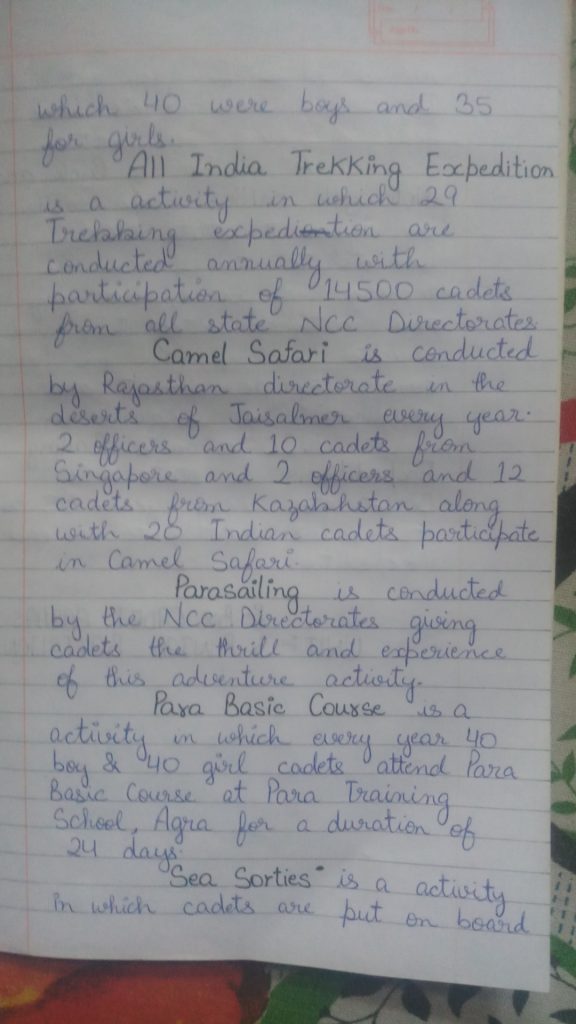 which 40 were boys and 35
for girls.
All India Trekking Expedition
is a activity in which 29
Trekking expedition are
conducted annually with
participation of 14500 cadets
from all state NCC Directorates
Camel Safari is conducted
by Rajasthan directorate in the
deserts of Jaisalmer every year.
2 officers and 10 cadets from
Singapore and 2 officers and 12
cadets from Kazakhstan along
with 20 Indian cadets participate
in Camel Safari.
Parasailing is conducted
by the NCC Directorates giving
cadets the thrill and experience
of this adventure activity.
Para Basic Course is a
activity in which every year 40
boy & 40 girl cadets attend Para
Basic Course at Para Training
School, Agra for a duration of
24 days.
"Sea Sorties" is a activity
in which cadets are put on board